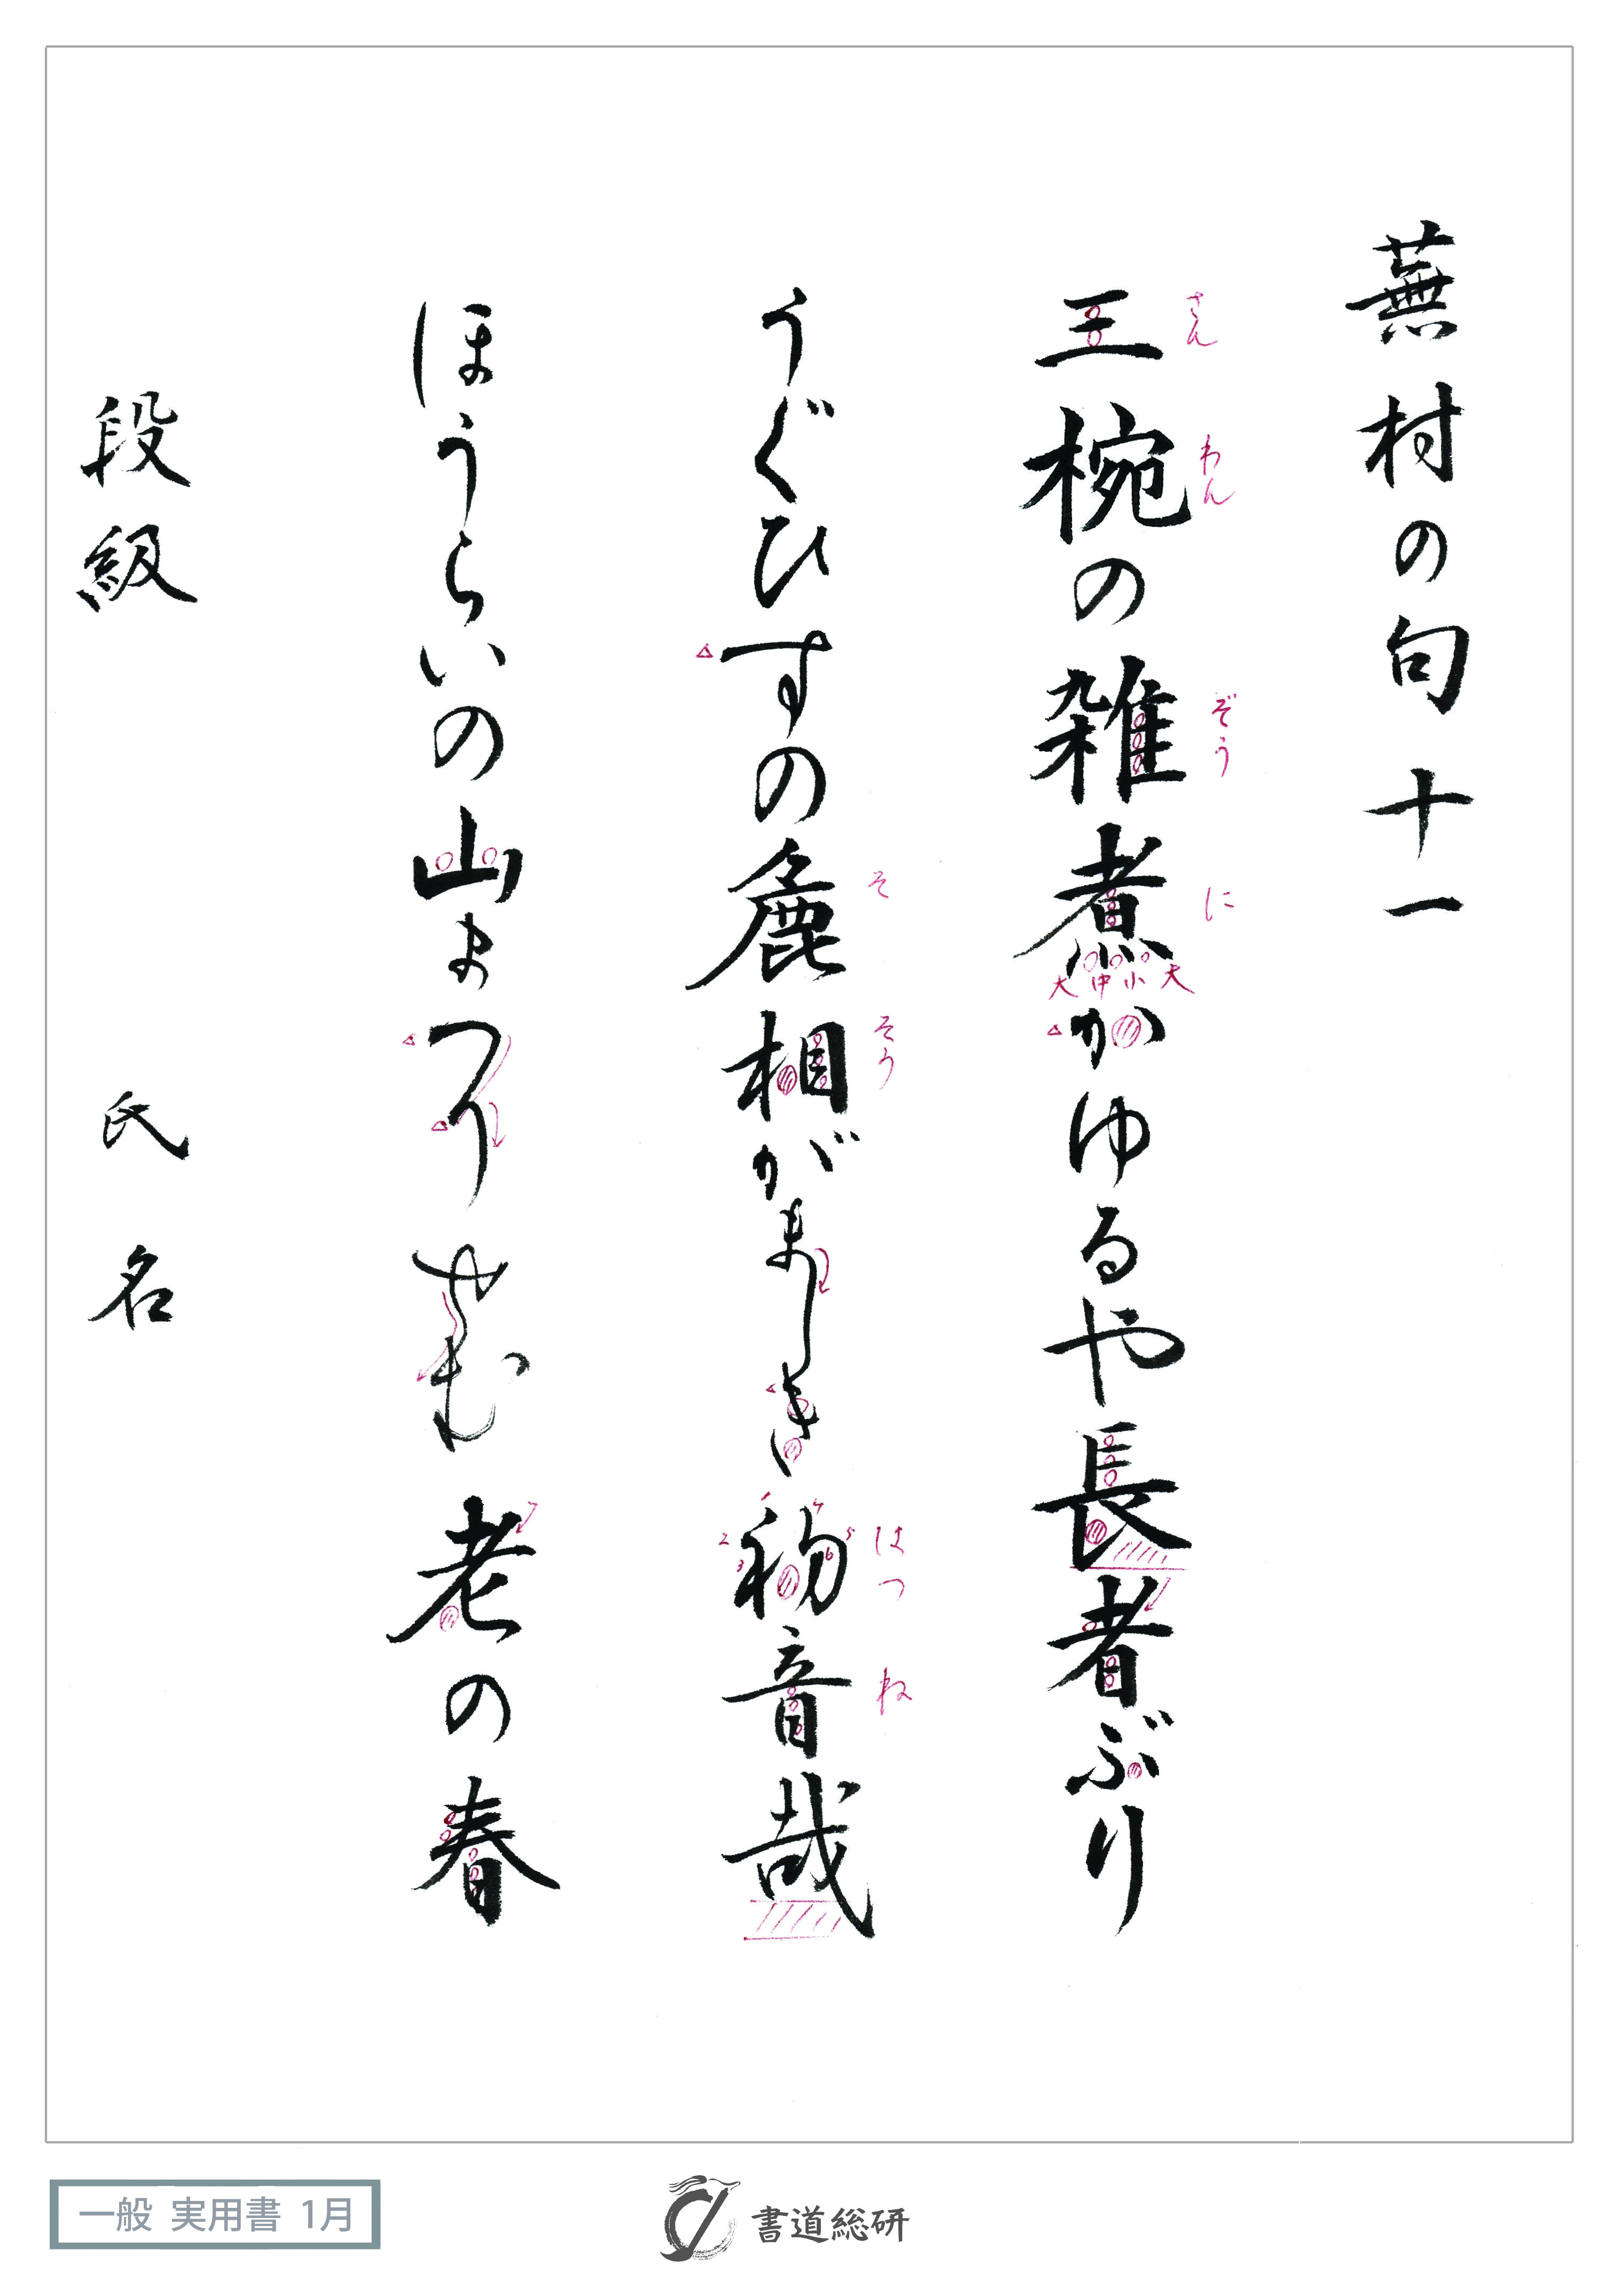 蕪村の句十一
三椀の雑煮かゆるや長者ぶり
さん わん ぞう に
大 中 小 大
うぐひすの麁相がましき初音哉
そ そう はつ ね
1 2 3 4 5 6
ほうらいの山まつりせむ老の春
段級 氏名
一般 実用書 1月
書道総研